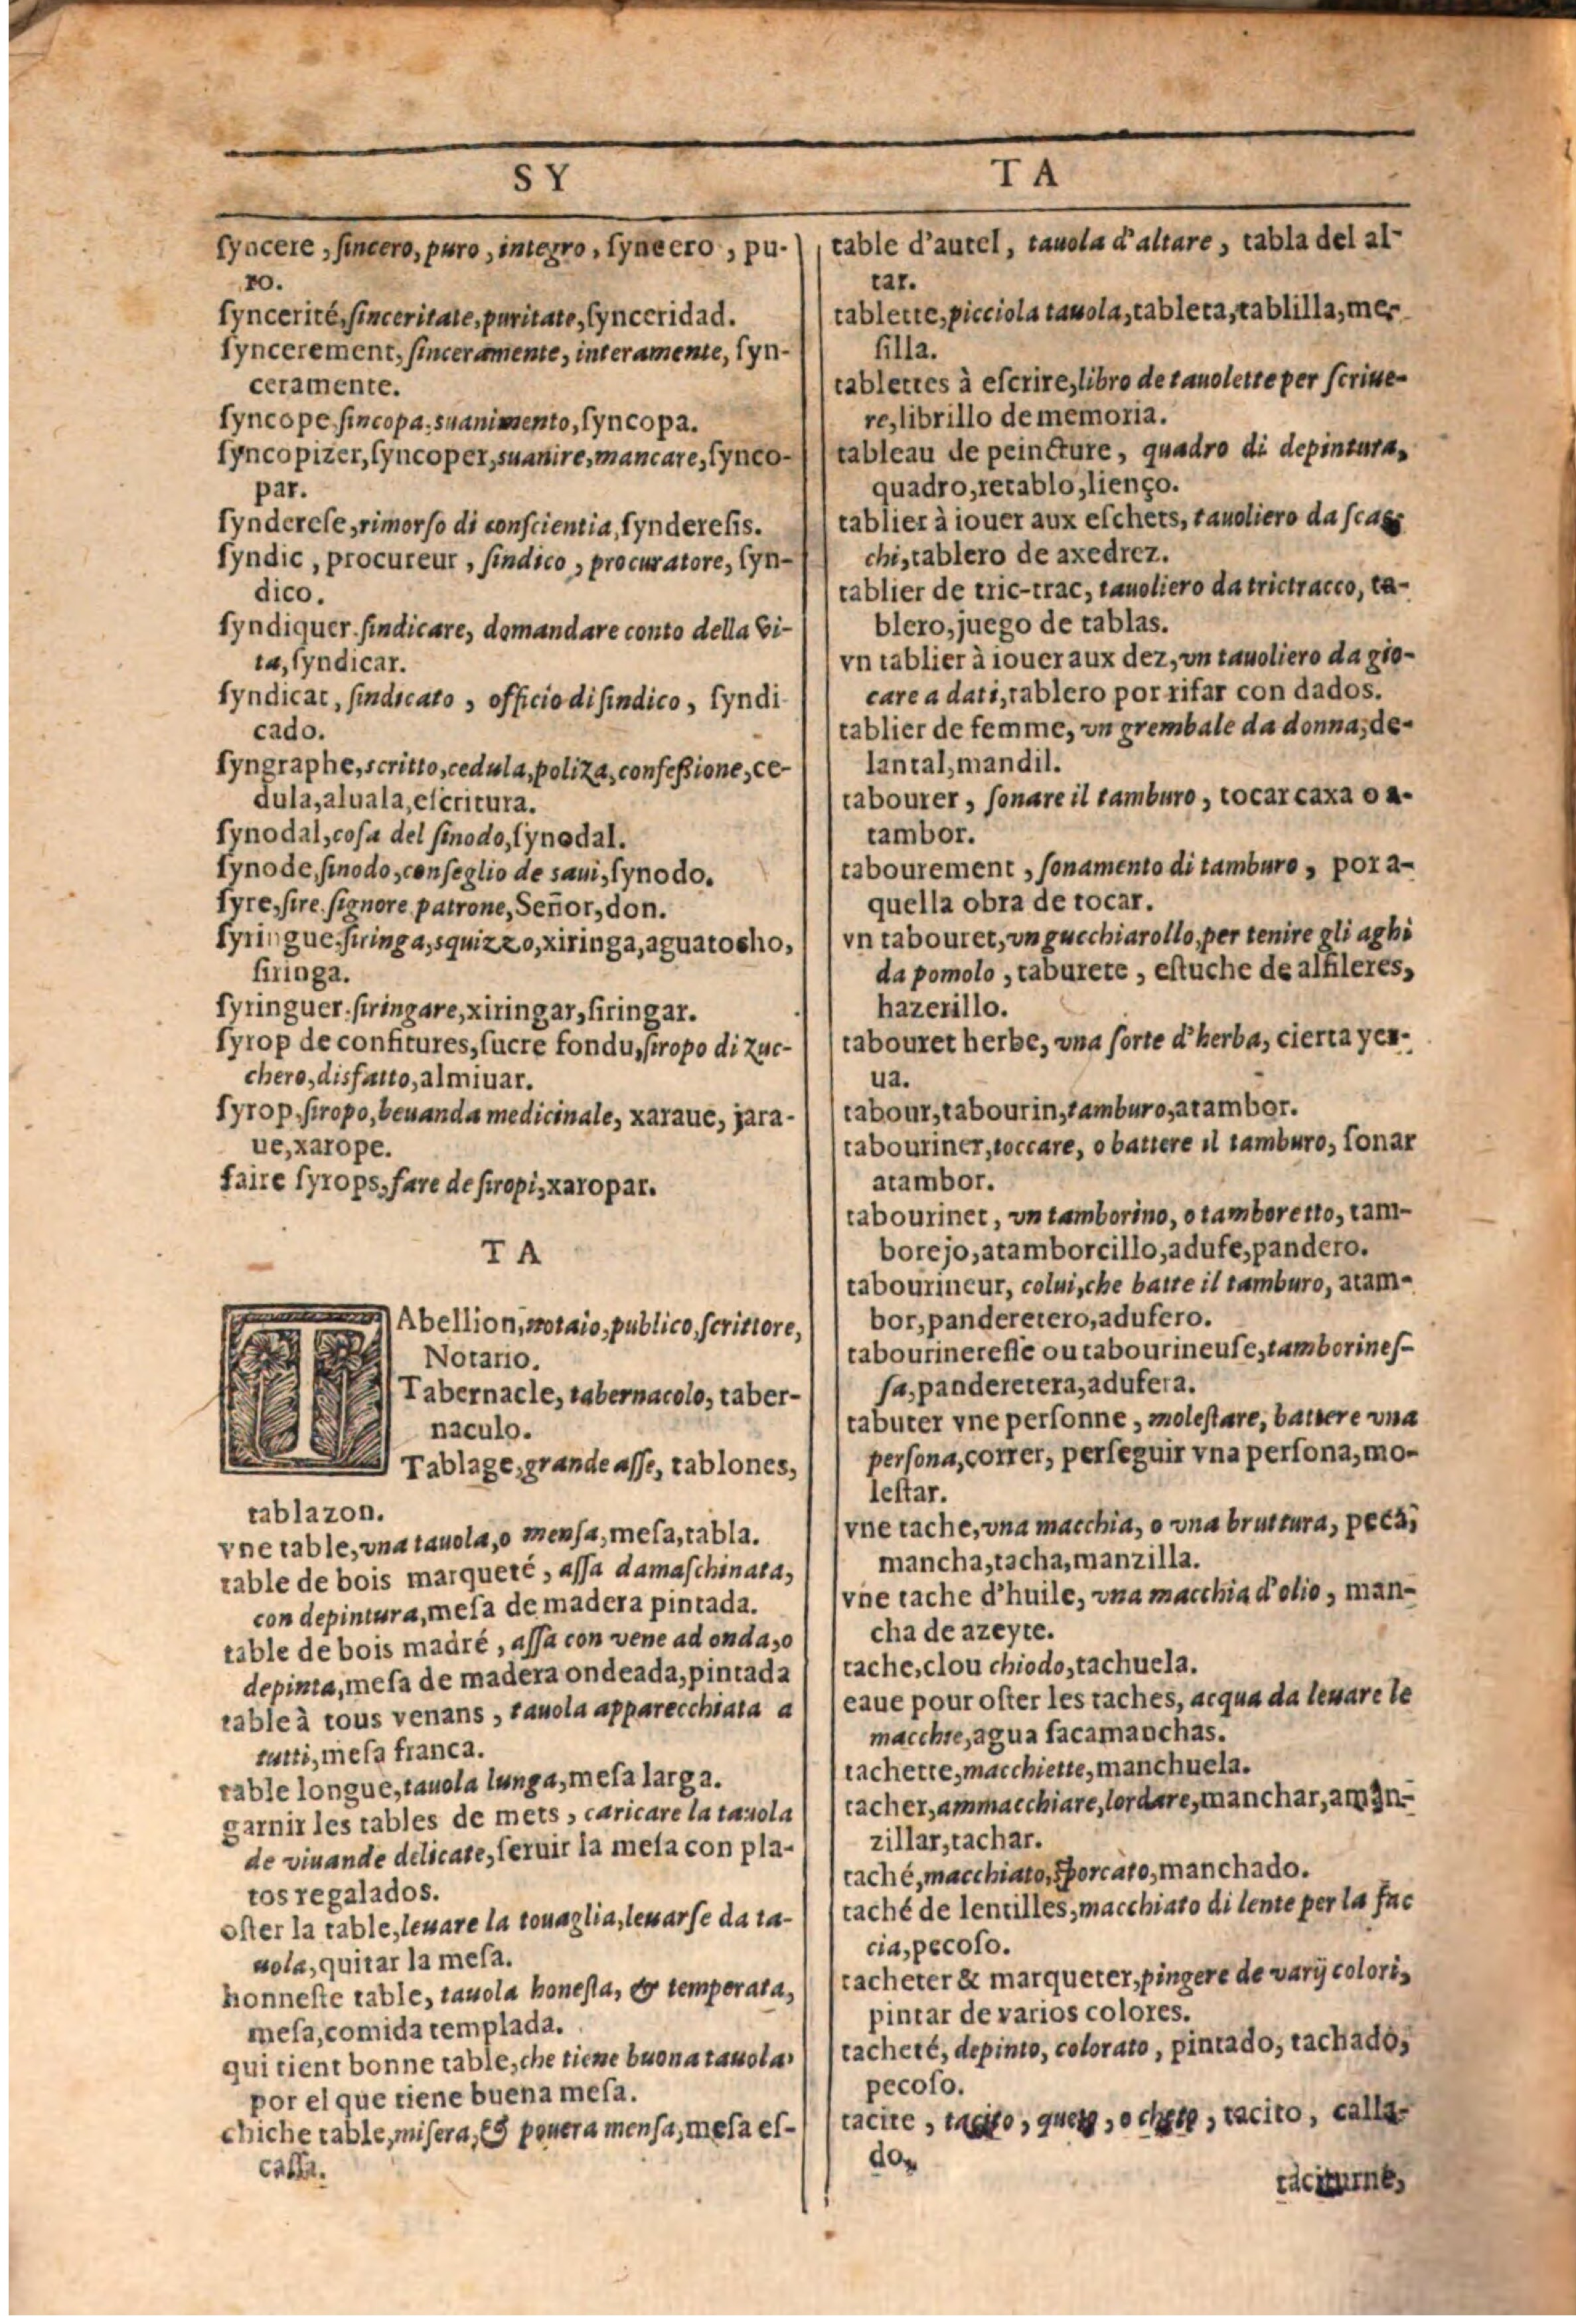 SY
ſyncere, ſincero, puro, integro, ſyncero, pu-
ro.
ſyncerité, ſinceritate, puritate, ſynceridad.
ſyncerement, ſinceramente, interamente, ſyn-
ceramente.
ſyncope, ſincopa, suanimento, ſyncopa.
ſyncopizer, ſyncoper, suanire, mancare, ſynco-
par.
ſyndereſe, rimorſo di conſcientia, ſyndereſis.
ſyndic, procureur, ſindico, procuratore, ſyn-
dico.
ſyndiquer. ſindicare, domandare conto della vi-
ta, ſyndicar.
ſyndicat, ſindicato, officio di ſindico, ſyndi
cado.
ſyngraphe, scritto, cedula, poliza, confeßione, ce-
dula, aluala, eſcritura.
ſynodal, coſa del ſinodo, ſynodal.
ſynode, ſinodo, conſeglio de savi, ſynodo.
ſyre, ſire. ſignore patrone, Señor, don.
ſyringue. ſiringa, squizzo, xiringa, aguatocho,
ſiringa.
ſyringuer. ſiringare, xiringar, ſiringar.
ſyrop de confitures, ſucre fondu, ſiropo di zuc-
chero, disfatto, almiuar.
ſyrop, ſiropo, beuanda medicinale, xaraue, jara-
ue, xarope.
faire ſyrops, fare de ſiropi, xaropar.
TA
TAbellion, notaio, publico, ſcrittore,
Notario.
Tabernacle, tabernacolo, taber-
naculo.
Tablage, grande aſſe, tablones,
tablazon.
vne table, vna tauola, o menſa, meſa, tabla.
table de bois marqueté, aſſa damaſchinata,
con depintura, meſa de madera pintada.
table de bois madré, aſſa con vene ad onda, o
depinta, meſa de madera ondeada, pintada
table à tous venans, tauola apparecchiata a
tutti, meſa franca.
table longue, tauola lunga, meſa larga.
garnir les tables de mets, caricare la tauola
de viuande delicate, ſeruir la meſa con pla-
tos regalados.
oſter la table, leuare la touaglia, leuarſe da ta-
uola, quitar la meſa.
honneſte table, tauola honeſta, & temperata,
meſa, comida templada.
qui tient bonne table, che tiene buona tauola,
por el que tiene buena meſa.
chiche table, miſera, & pouera menſa, meſa eſ-
caſſa.
TA
table d'autel, tauola d'altare, tabla del al-
tar.
tablette, picciola tauola, tableta, tablilla, me-
ſilla.
tablettes à eſcrire, libro de tauolette per ſcriue-
re, librillo de memoria.
tableau de peincture, quadro di depintura,
quadro, retablo, lienço.
tablier à iouer aux eſchets, tauoliero da ſcac-
chi, tablero de axedrez.
tablier de tric-trac, tauoliero da trictracco, ta-
blero, juego de tablas.
vn tablier à iouer aux dez, vn tauoliero da gio-
care a dati, tablero por rifar con dados.
tablier de femme, vn grembale da donna, de-
lantal, mandil.
tabourer, ſonare il tamburo, tocar caxa o a-
tambor.
tabourement, ſonamento di tamburo, por a-
quella obra de tocar.
vn tabouret, vn gucchiarollo, per tenire gli aghi
da pomolo, taburete, eſtuche de alfileres,
hazerillo.
tabouret herbe, vna ſorte d'herba, cierta yer-
ua.
tabour, tabourin, tamburo, atambor.
tabouriner, toccare, o battere il tamburo, ſonar
atambor.
tabourinet, vn tamborino, o tamboretto, tam-
borejo, atamborcillo, adufe, pandero.
tabourineur, colui, che batte il tamburo, atam-
bor, panderetero, adufero.
tabourinereſſe ou tabourineuſe, tamborineſ-
ſa, panderetera, adufera.
tabuter vne perſonne, moleſtare, battere vna
perſona, correr, perſeguir vna perſona, mo-
leſtar.
vne tache, vna macchia, o vna bruttura, peca,
mancha, tacha, manzilla.
vne tache d'huile, vna macchia d'olio, man-
cha de azeyte.
tache, clou chiodo, tachuela.
eaue pour oſter les taches, acqua da leuare le
macchie, agua ſacamanchas.
tachette, macchiette, manchuela.
tacher, ammacchiare, lordare, manchar, aman-
zillar, tachar.
taché, macchiato, ſporcato, manchado.
taché de lentilles, macchiato di lente per la fac
cia, pecoſo.
tacheter & marqueter, pingere de varij colori,
pintar de varios colores.
tacheté, depinto, colorato, pintado, tachado,
pecoſo.
tacite, tacito, queto, o cheto, tacito, calla-
do,
taciturne,